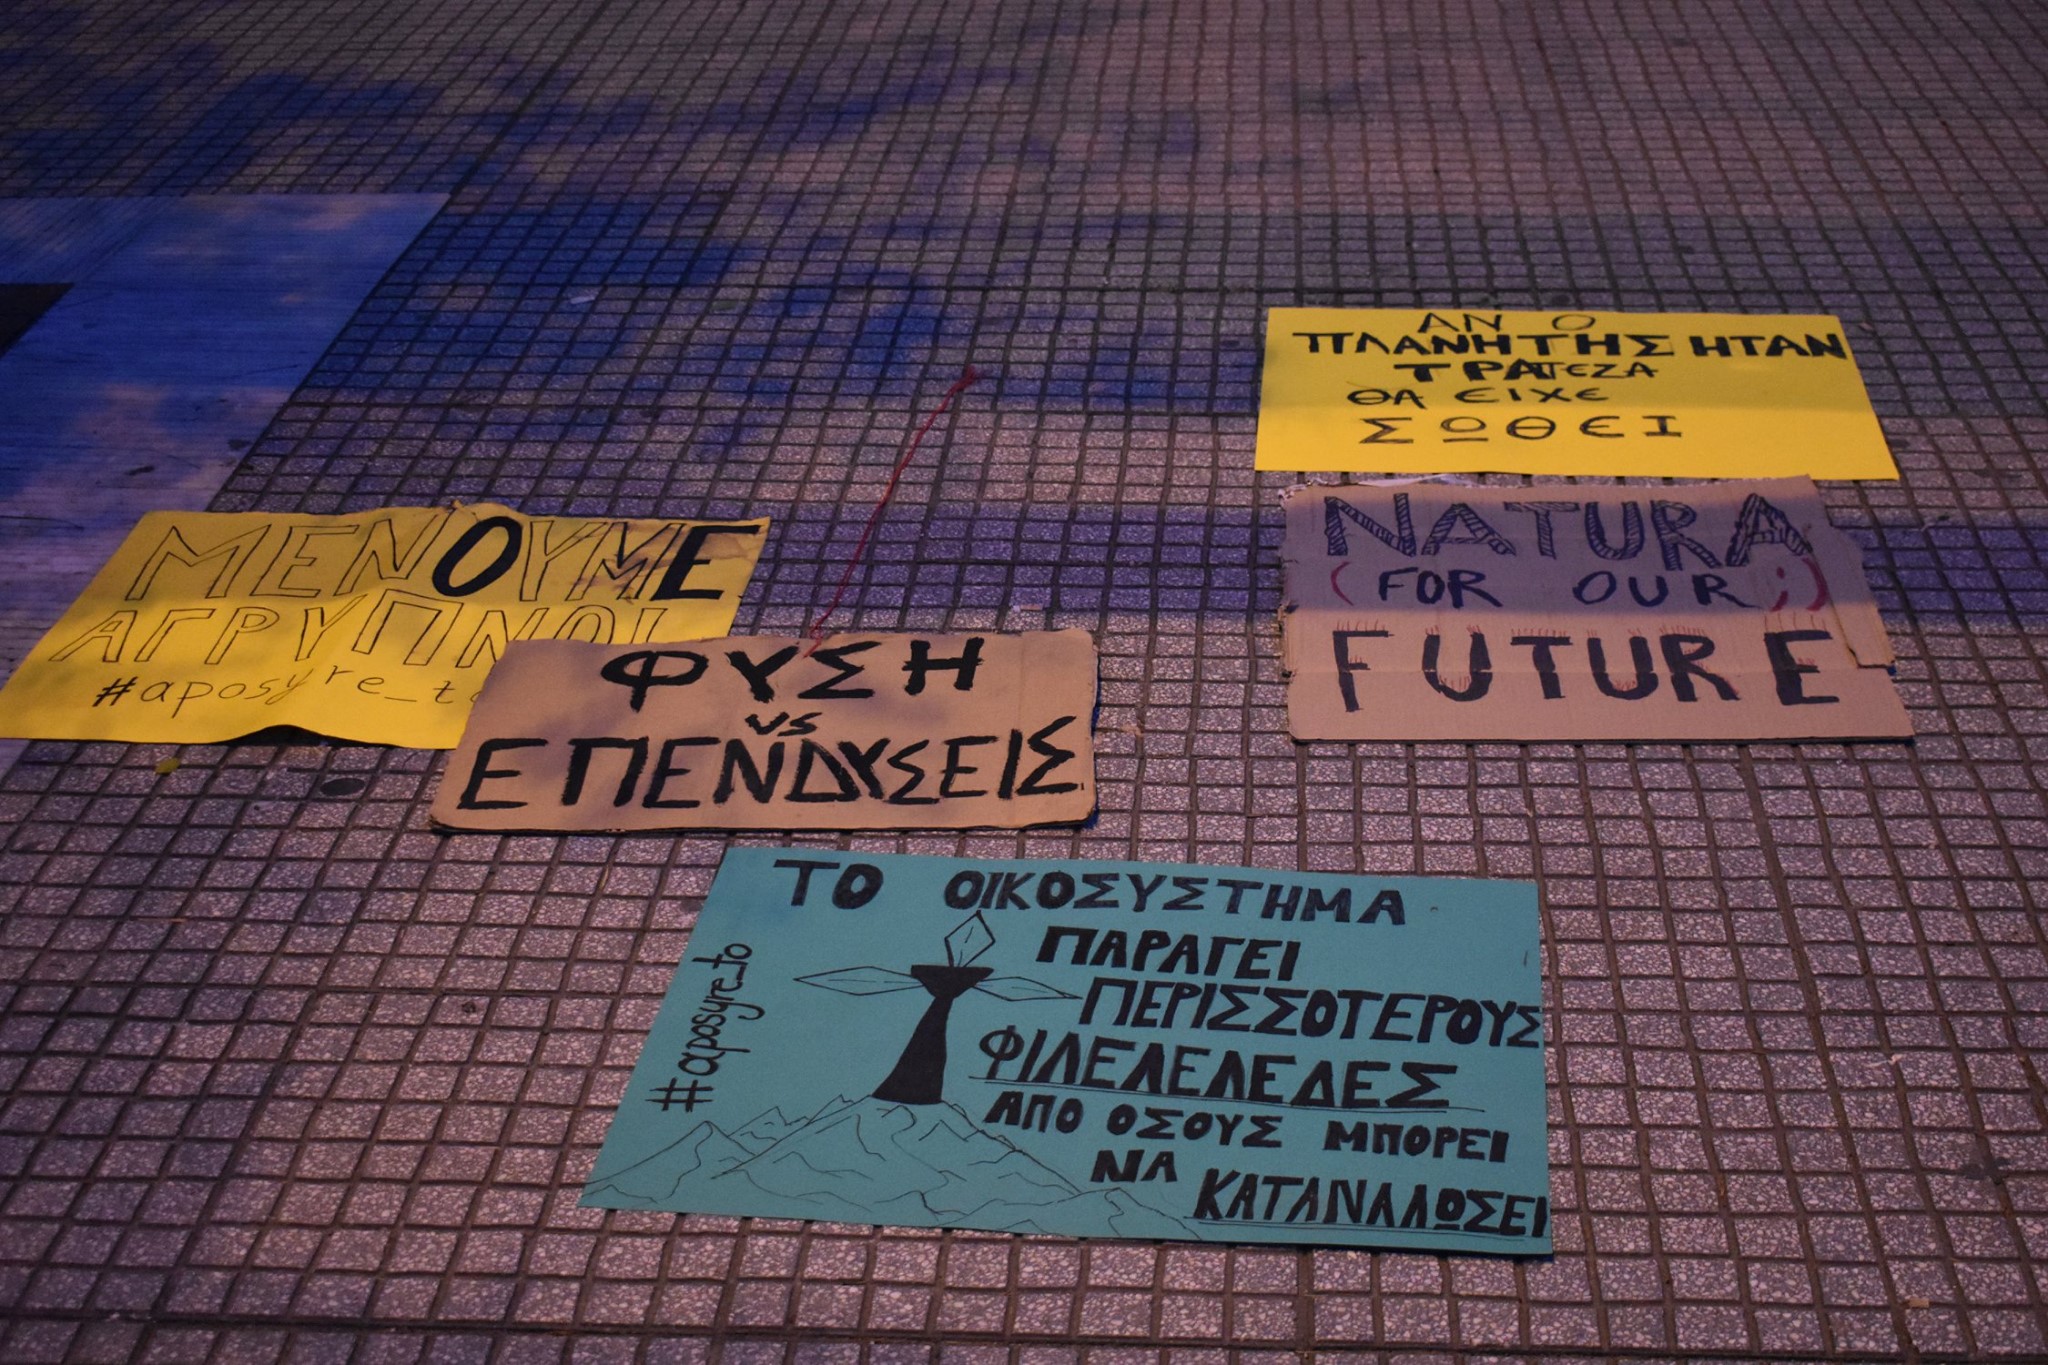 ΑΝ Ο
ΠΛΑΝΗΤΗΣ ΗΤΑΝ
ΤΡΑΠΕΖΑ
ΘΑ ΕΙΧΕ
ΣΩΘΕΙ
NATURA
(FOR OUR ;)
FUTURE
ΜΕΝΟΥΜΕ
ΑΓΡΥΠΝΟΙ
#aposyre_to
ΦΥΣΗ
vs
ΕΠΕΝΔΥΣΕΙΣ
ΤΟ ΟΙΚΟΣΥΣΤΗΜΑ
ΠΑΡΑΓΕΙ
ΠΕΡΙΣΣΟΤΕΡΟΥΣ
ΦΙΛΕΛΕΛΕΔΕΣ
ΑΠΟ ΟΣΟΥΣ ΜΠΟΡΕΙ
ΝΑ ΚΑΤΑΝΑΛΩΣΕΙ
#aposyre_to